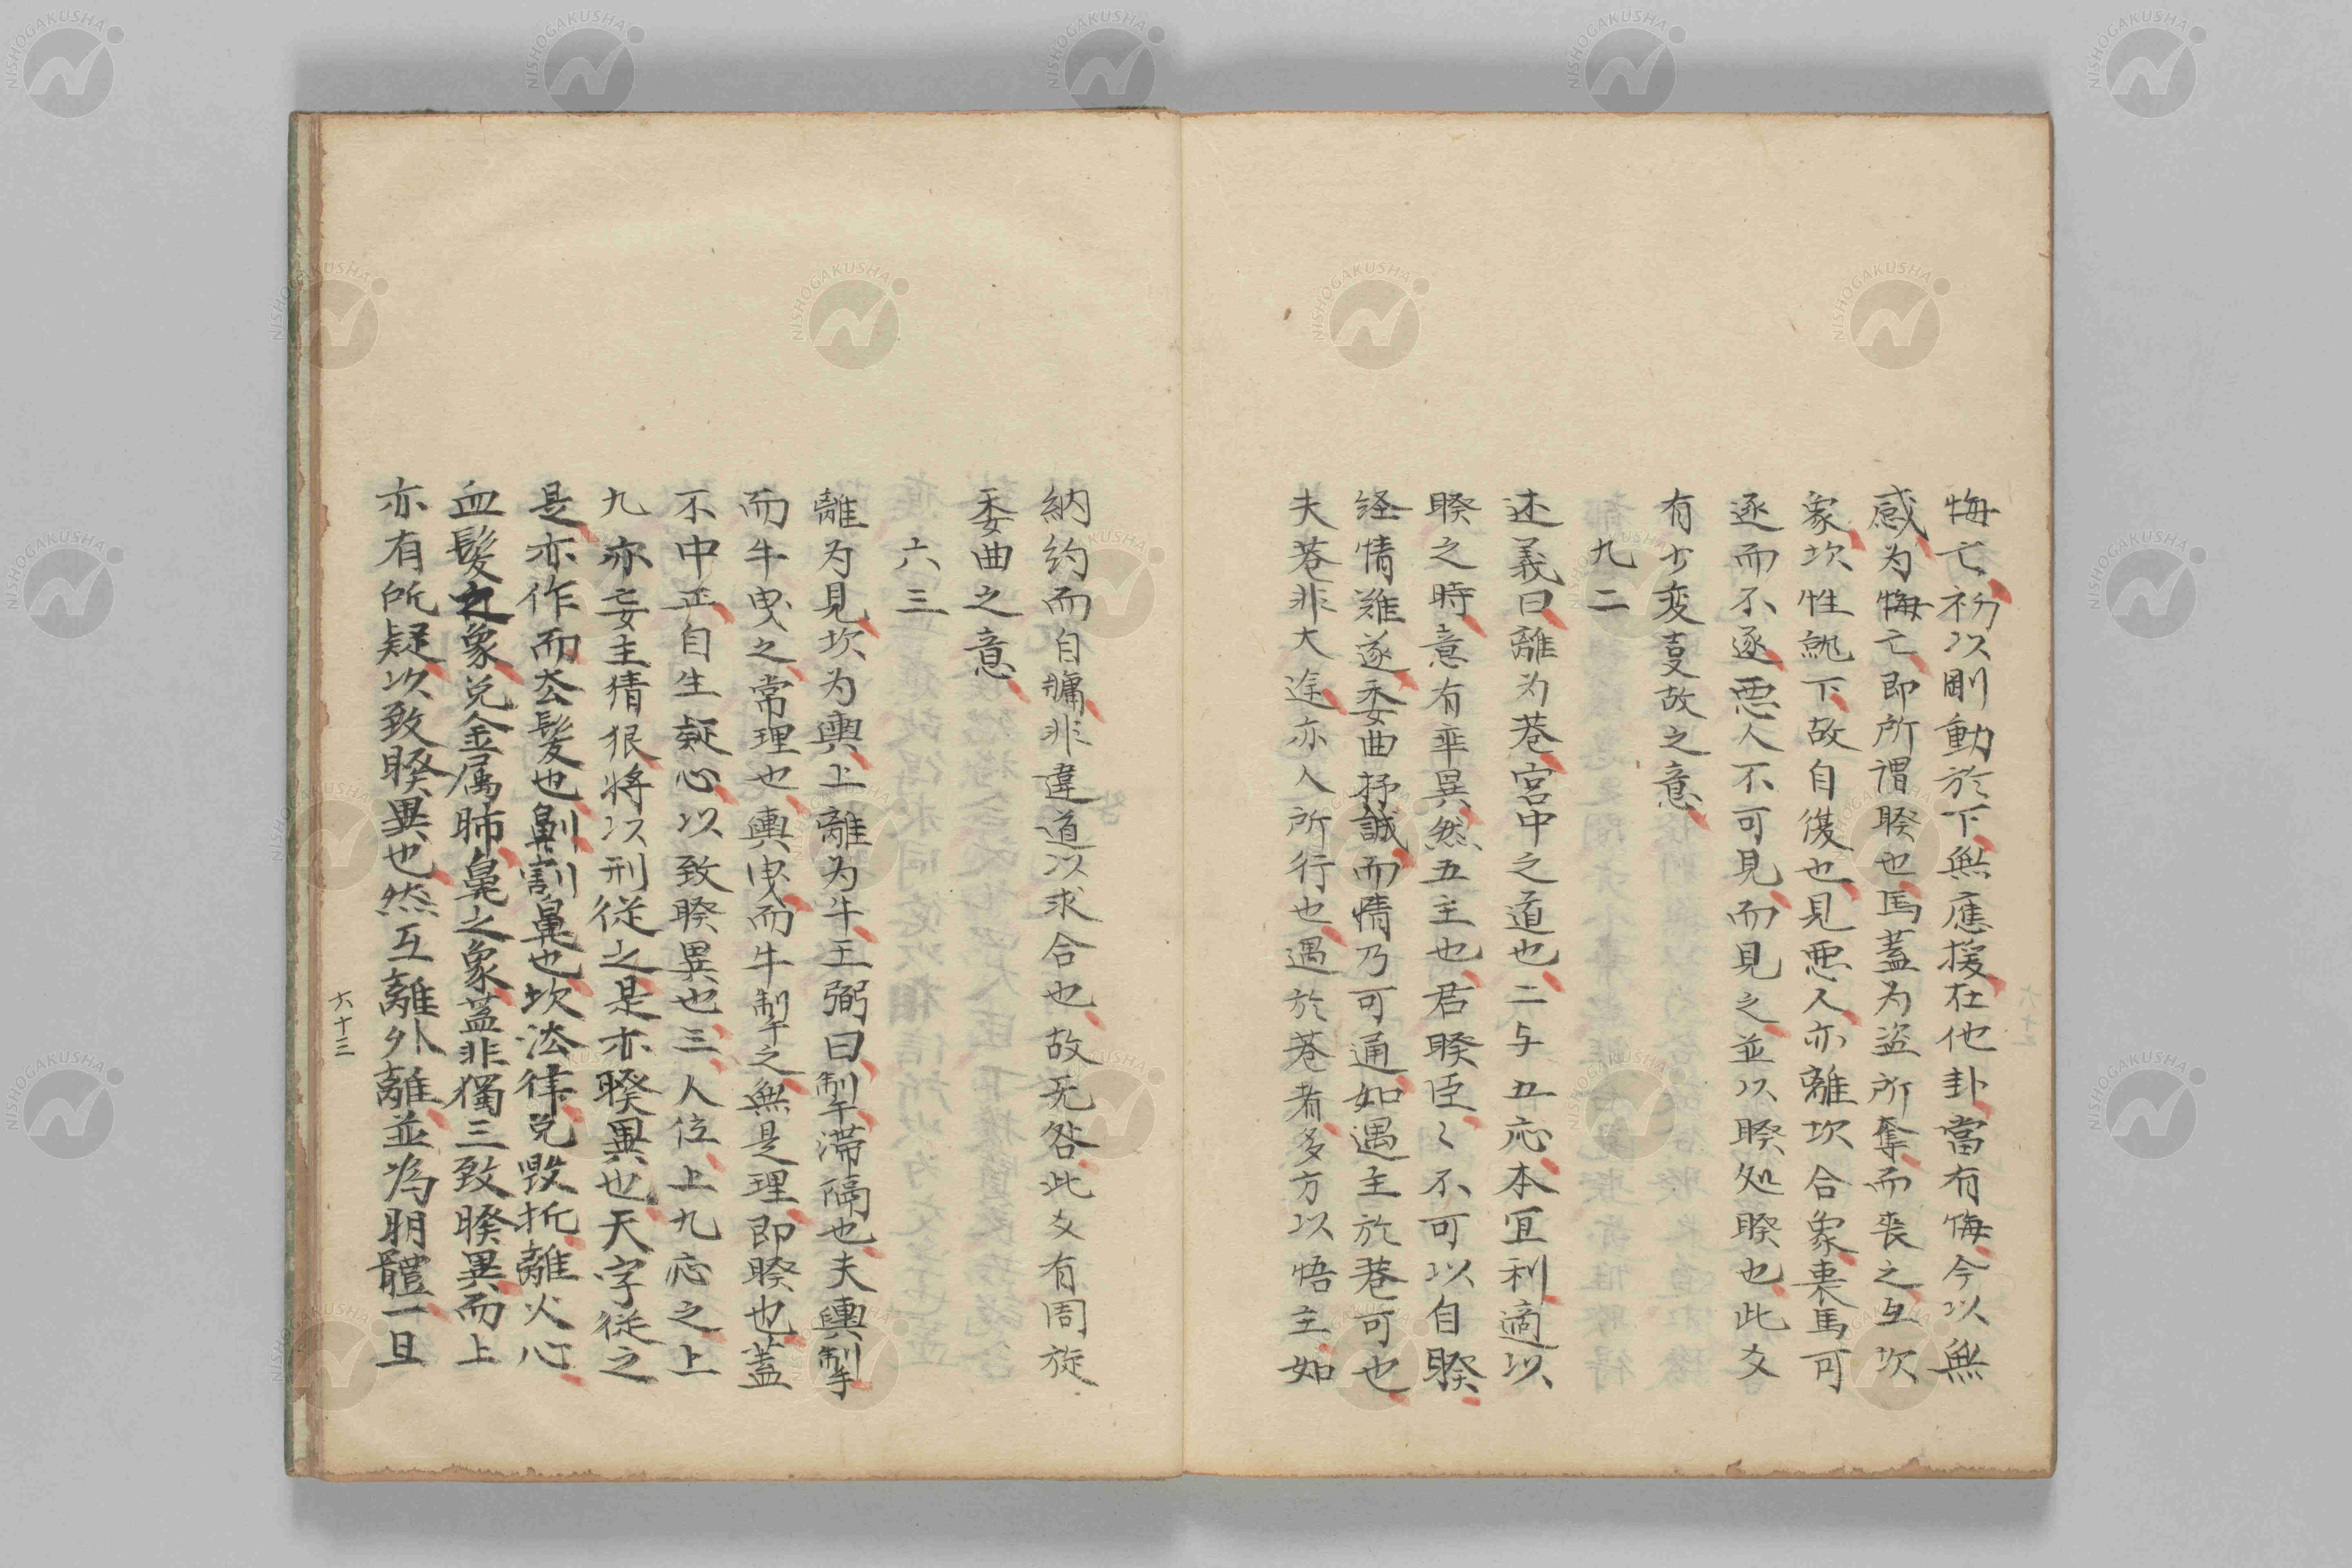 悔亡初以剛動於下無應援在他卦當有悔今以無
感为悔亡即所謂睽也馬蓋为盗所奪而喪之互坎
象坎性就下故自復也見悪人亦離坎合象裏馬可
逐而不逐悪人不可見而見之並以睽処睽也此爻
有少変故之意
九二
述義曰離为巷宮中之道也二与五応本宜利適以
睽之時意有乖異然五主也君睽臣〻不可以自睽
経情難遂委曲抒誠而情乃可通如遇主於巷可也
夫巷非大途亦人所行也遇於巷者多方以悟主如
納約而自牖非違道以求合也故无咎此爻有周旋
委曲之意
六三
離为見坎为輿上離为牛王弼曰掣滞隔也夫輿掣
而牛曳之常理也輿曳而牛掣之無是理即睽也蓋
不中正自生疑心以致睽異也三人位上九応之上
九亦妄主猜狠将以刑従之是亦睽異也天字従之
是亦作而夳髪也劓割鼻也坎法律兌毀折離火心
血髪之象兌金属肺鼻之象蓋非獨三致睽異而上
亦有所疑以致睽異也然互離外離並為明體一旦
六十三
NISHOGAKUSHA